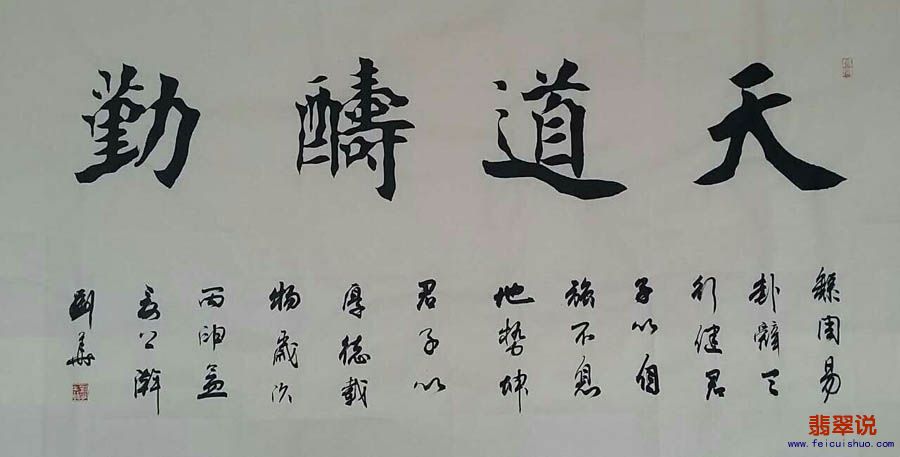 天道醻勤
錄周易
卦辭天
行健君
子以自
強不息
地勢坤
君子以
厚德載
物歲次
丙申孟
劉華
翡翠说
www.feicuishuo.com